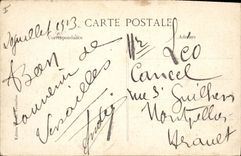 juillet 1913
CARTE POSTALE
Correspondance
Adresse
Bon
souvenir de
Versailles
Mr Leo
Cancel
rue St Guilhem
Montpellier
Hérault